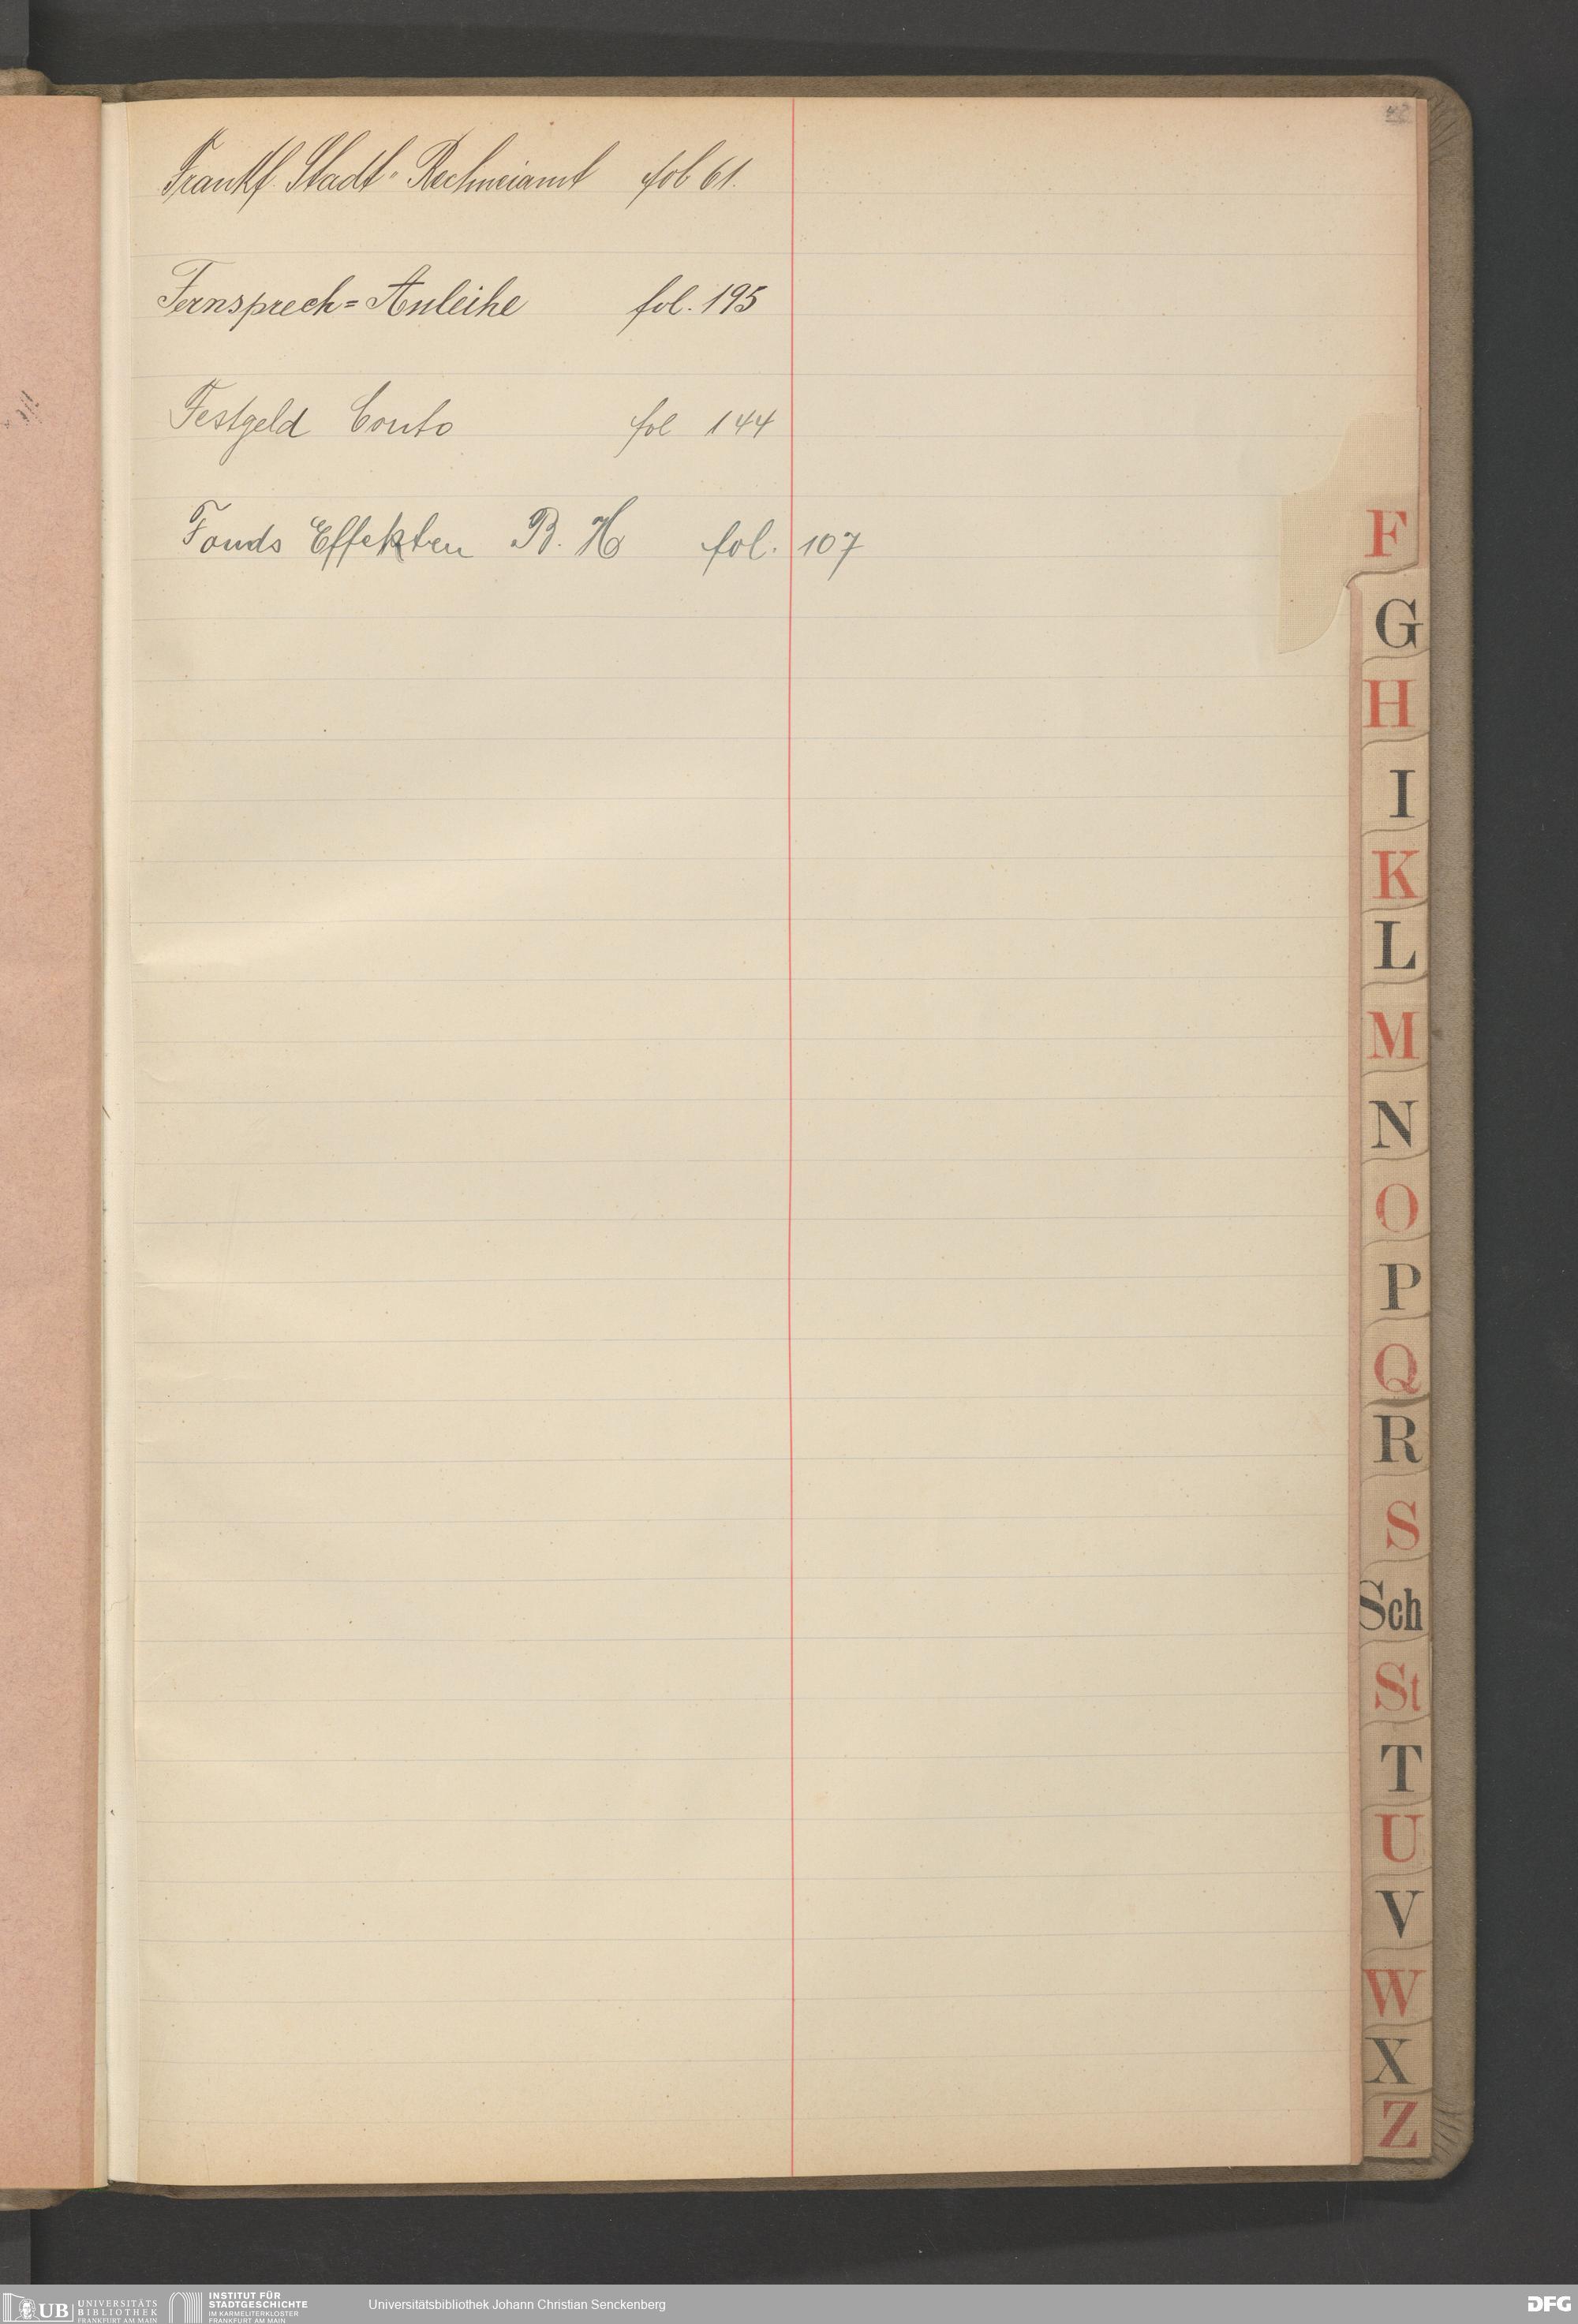 Frankf. Stadt-Rechneiamt fol 61.
Fernsprech=Anleihe fol. 195
Festgeld Conto fol 144
Fonds Effekten B. H fol. 107
F
G
H
I
K
L
M
N
O
P
Q
R
S
Sch
St
T
U
V
W
X
Z
UB UNIVERSITÄTS
BIBLIOTHEK
FRANKFURT AM MAIN
INSTITUT FÜR
STADTGESCHICHTE
IM KARMELITERKLOSTER
FRANKFURT AM MAIN
Universitätsbibliothek Johann Christian Senckenberg
DFG